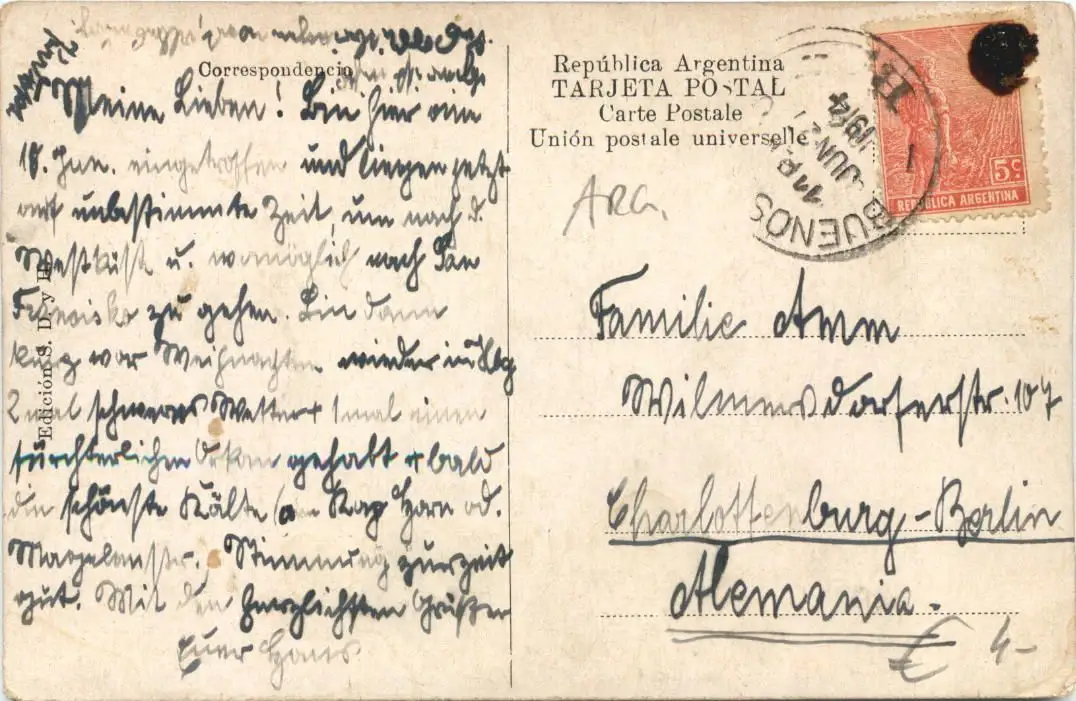 Correspondencia
Meine Lieben! Bin hier am
18. Jun. eingetroffen und liegen jetzt
auf unbestimmte Zeit, um nach d.
Westküste u. womöglich nach San
Francisko zu gehen. Bin dann
kurz vor Weihnachten wieder in Hbg
2 mal schweres Wetter + 1 mal einen
fürchterlichen Orkan gehabt + bald
die schönste Kälte (am Kap Horn od.
Magelanstr. Stimmung zurzeit
gut. Mit den herzlichsten Grüßen
Euer Hans
Edición S. D. y H.
República Argentina
TARJETA POSTAL
Carte Postale
Unión postale universelle
ARG.
BUENOS
11 P
JUN 21
1914
5c
REPÚBLICA ARGENTINA
Familie Amm
Wilmersdorferstr. 107
Charlottenburg-Berlin
Alemania.
€ 4-